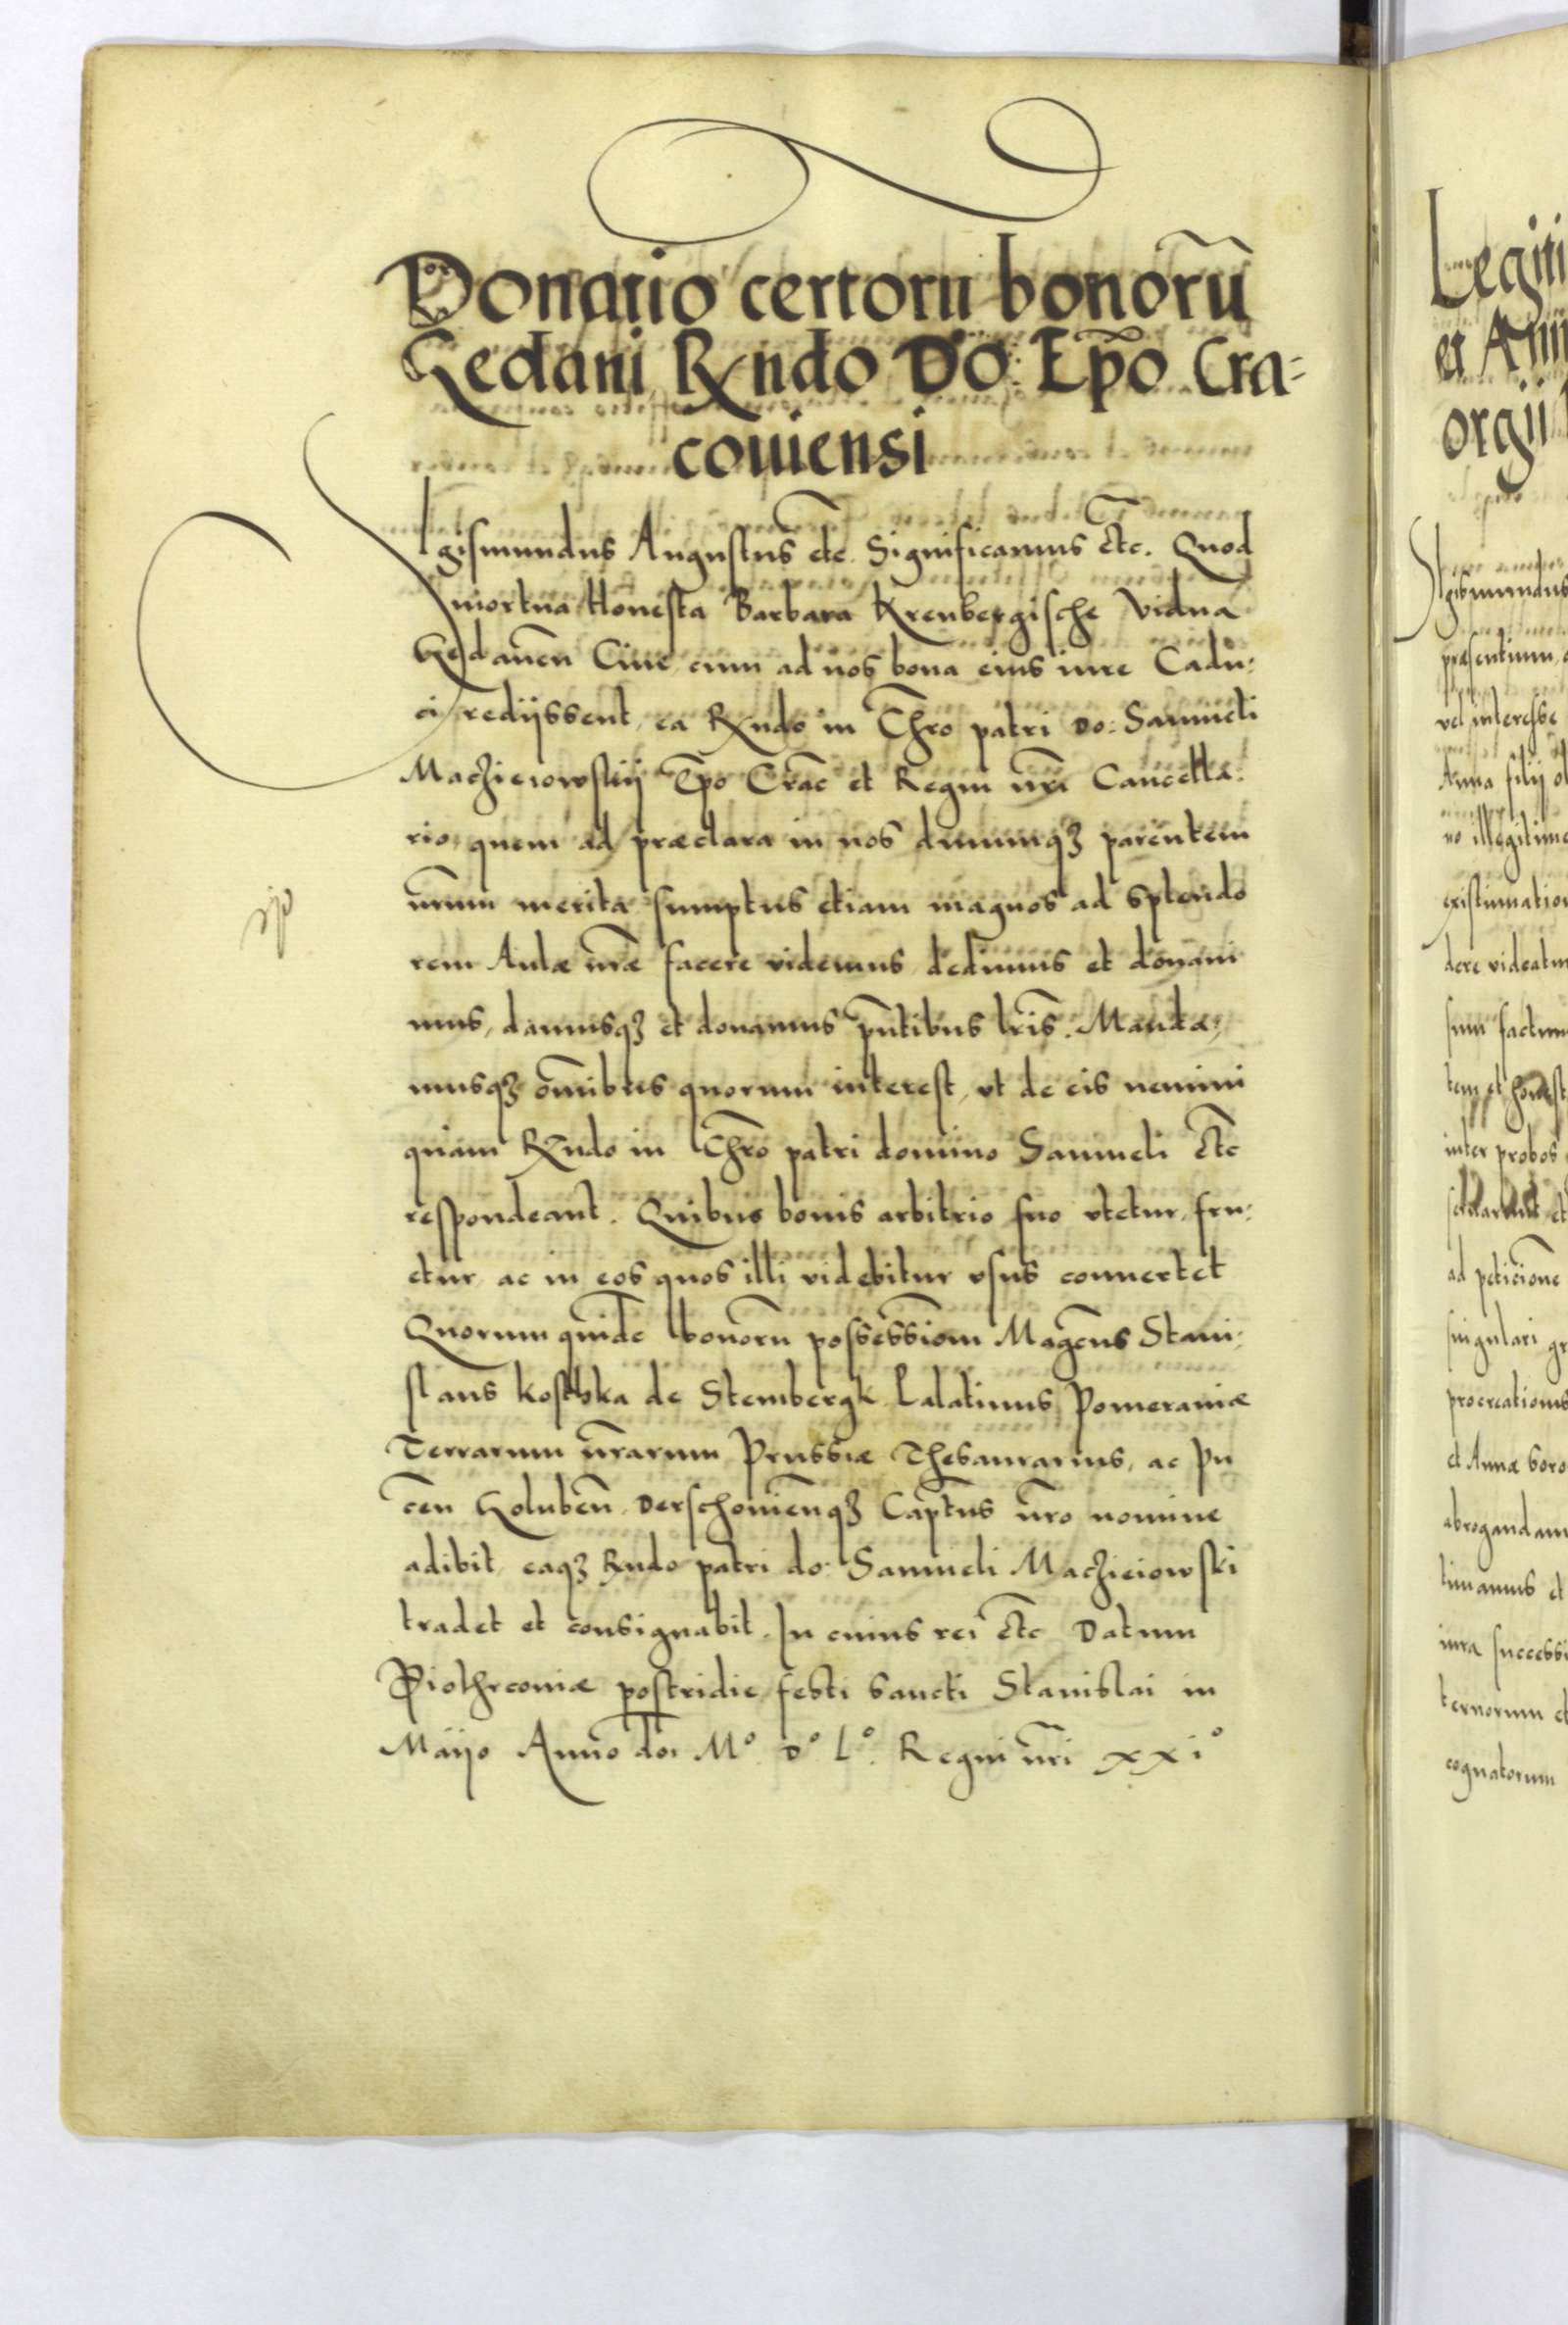 Donatio certorū bonorū
Gedani Rxndo Do: Ep̄o Cra-
couiensi
Sigismundus Augustus etc. Significamus etc. Quod
mortua Honesta Barbara Krenbergische Vidua
Gedanen̄ Ciue, cum ad nos bona eius iure Cadu:
ci redijssent, ea Rxndo in Chr̄o patri Do: Samueli
Machieiowskij Ep̄o Crac̄ et Regni nr̄i Cancella:
rio, quem ad præclara in nos diuumqȝ parentem
nr̄um merita sumptus etiam magnos ad splendo
rem Aulæ nr̄æ facere videmus, dedimus et donaui
mus, damusqȝ et donamus p̄ntibus lr̄is. Manda:
musqȝ om̄ibus quorum interest, vt de eis nemini
quam Rxndo in Chr̄o patri domino Samueli etc̄
respondeant. Quibus bonis arbitrio suo vtetur, fru:
etur, ac in eos quos illi videbitur vsus conuertet
Quorum quidē bonorū possessiōm Magc̄us Stani:
slaus Kosthka de Stembergk Palatinus Pomeraniæ
Terrarum nr̄arum Prussiæ Thesaurarius, ac Pu
cen̄ Goluben̄ Derschouien̄qȝ Capt̄us nr̄o nomine
adibit, eaqȝ Rndo patri do: Samueli Machieiowski
tradet et consignabit. In cuius rei etc̄ Datum
Piothrcouiæ postridie festi sancti Stanislai in
Maijo Anno doī M° D° L°. Regni nr̄i xxi°
Legiti
et Ann
orgii
Sigismundus
præsentium,
vel interesse
Anna filij
no illegitime
existimation
dere videatur
sum factum
tem et honest
inter probos
ad peticione
singulari gr
procreationis
et Annæ soro
abrogandam
timamus et
iura successi
ternorum et
cognatorum